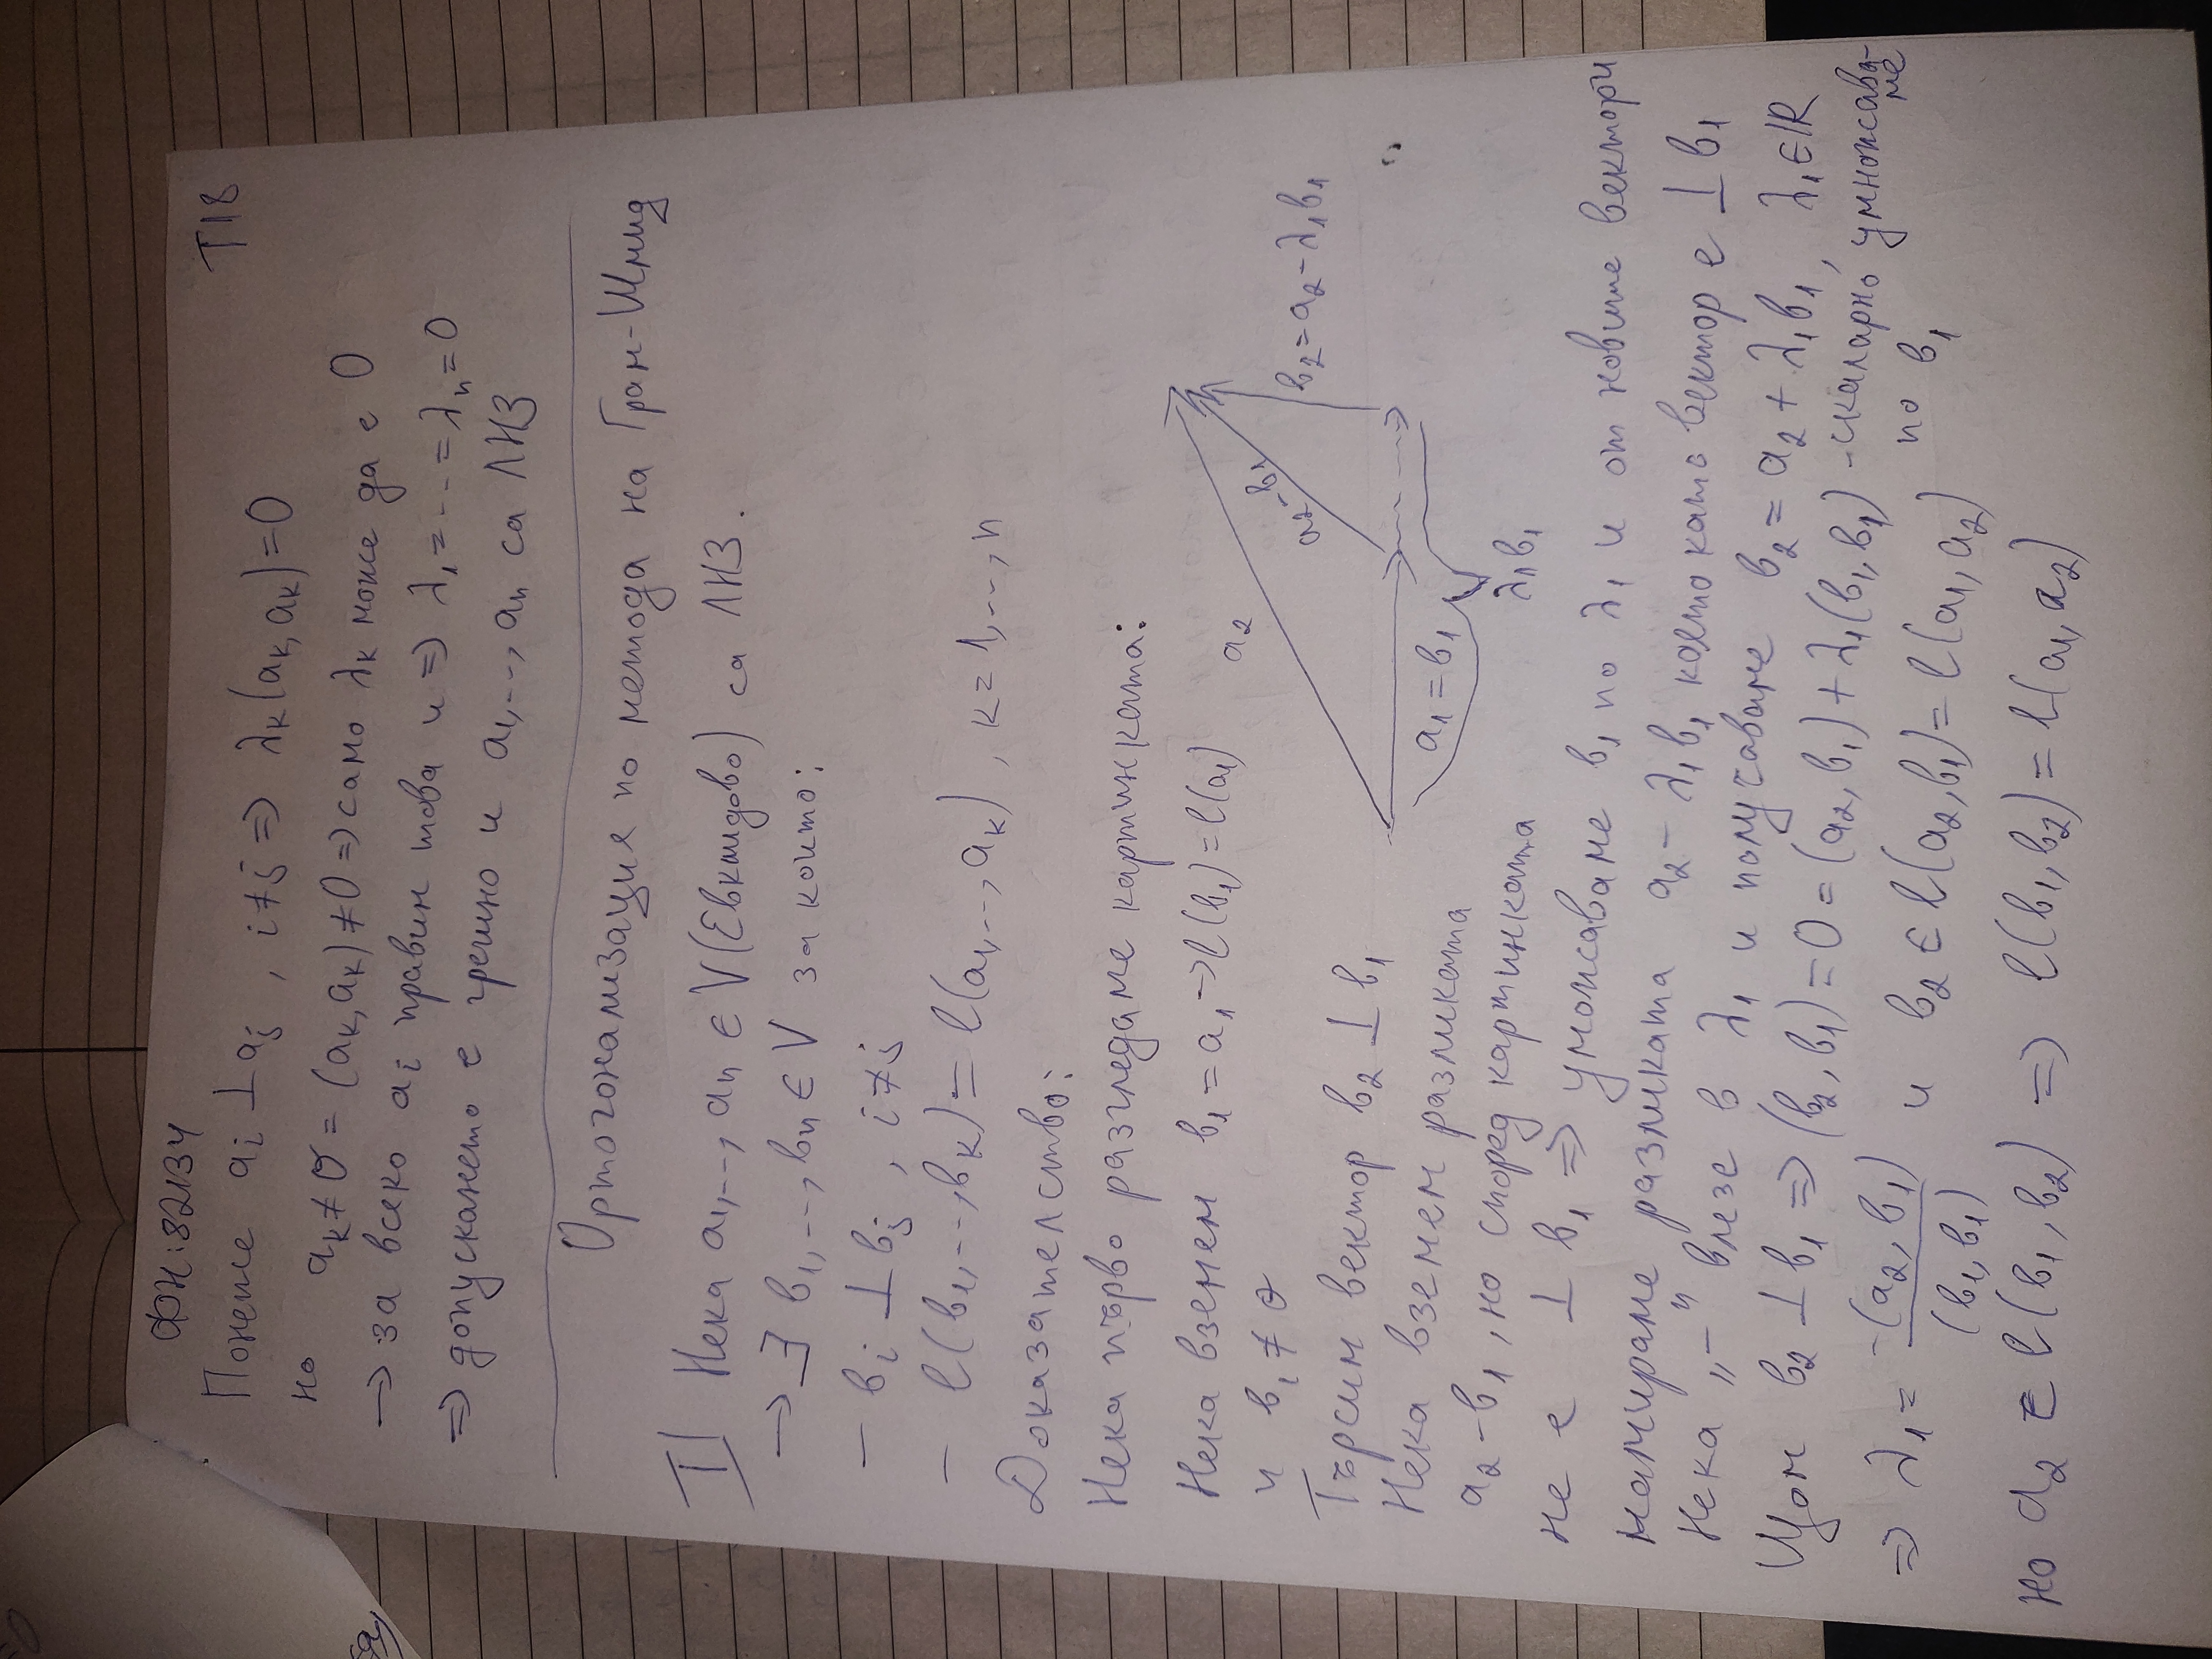 ФН:82134
T18
Понеже ai ⊥ aj , i≠j => λk(ak, ak)=0
но ak≠σ = (ak, ak)≠0 => само λk може да е 0
→ за всеко ai правим това и => λ1=...=λn=0
=> допускането е грешно и a1,..., an са ЛНЗ
Ортогонализация по метода на Грам-Шмид
T| Нека a1,..., an ∈ V(Евклидово) са ЛНЗ.
→ ∃ b1,..., bn ∈ V за които:
- bi ⊥ bj , i≠j
- l(b1,..., bk) = l(a1,..., ak) , k=1,..., n
Доказателство:
Нека първо разгледаме картинката:
Нека вземем b1=a1 → l(b1)=l(a1)
и b1≠σ
a2
a2-b1
b2=a2-λ1b1
a1=b1
λ1b1
Търсим вектор b2 ⊥ b1
Нека вземем разликата
a2-b1, но според картинката
не е ⊥ b1 => уможаваме b1 по λ1 и от новите вектори
намираме разликата a2-λ1b1 което като вектор е ⊥ b1
Нека „-" влезе в λ1 и получаваме b2=a2+λ1b1, λ1∈ℝ
Щом b2 ⊥ b1 => (b2, b1)=0=(a2, b1)+λ1(b1, b1) - скаларно умножаваме
по b1
=> λ1= -(a2, b1)/(b1, b1) и b2 ∈ l(a2, b1)=l(a1, a2)
но a2 ∈ l(b1, b2) => l(b1, b2)=l(a1, a2)